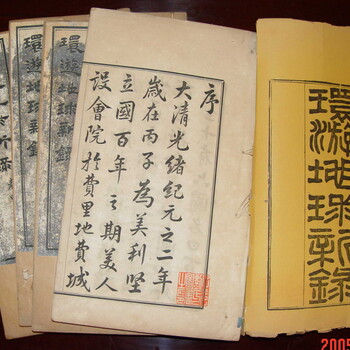 序
大清光緒紀元之二年
歲在丙子為美利堅
立國百年之期美人
設會院於費里地費城
環游地球新錄
環游地球新錄
環游地球新錄
2005